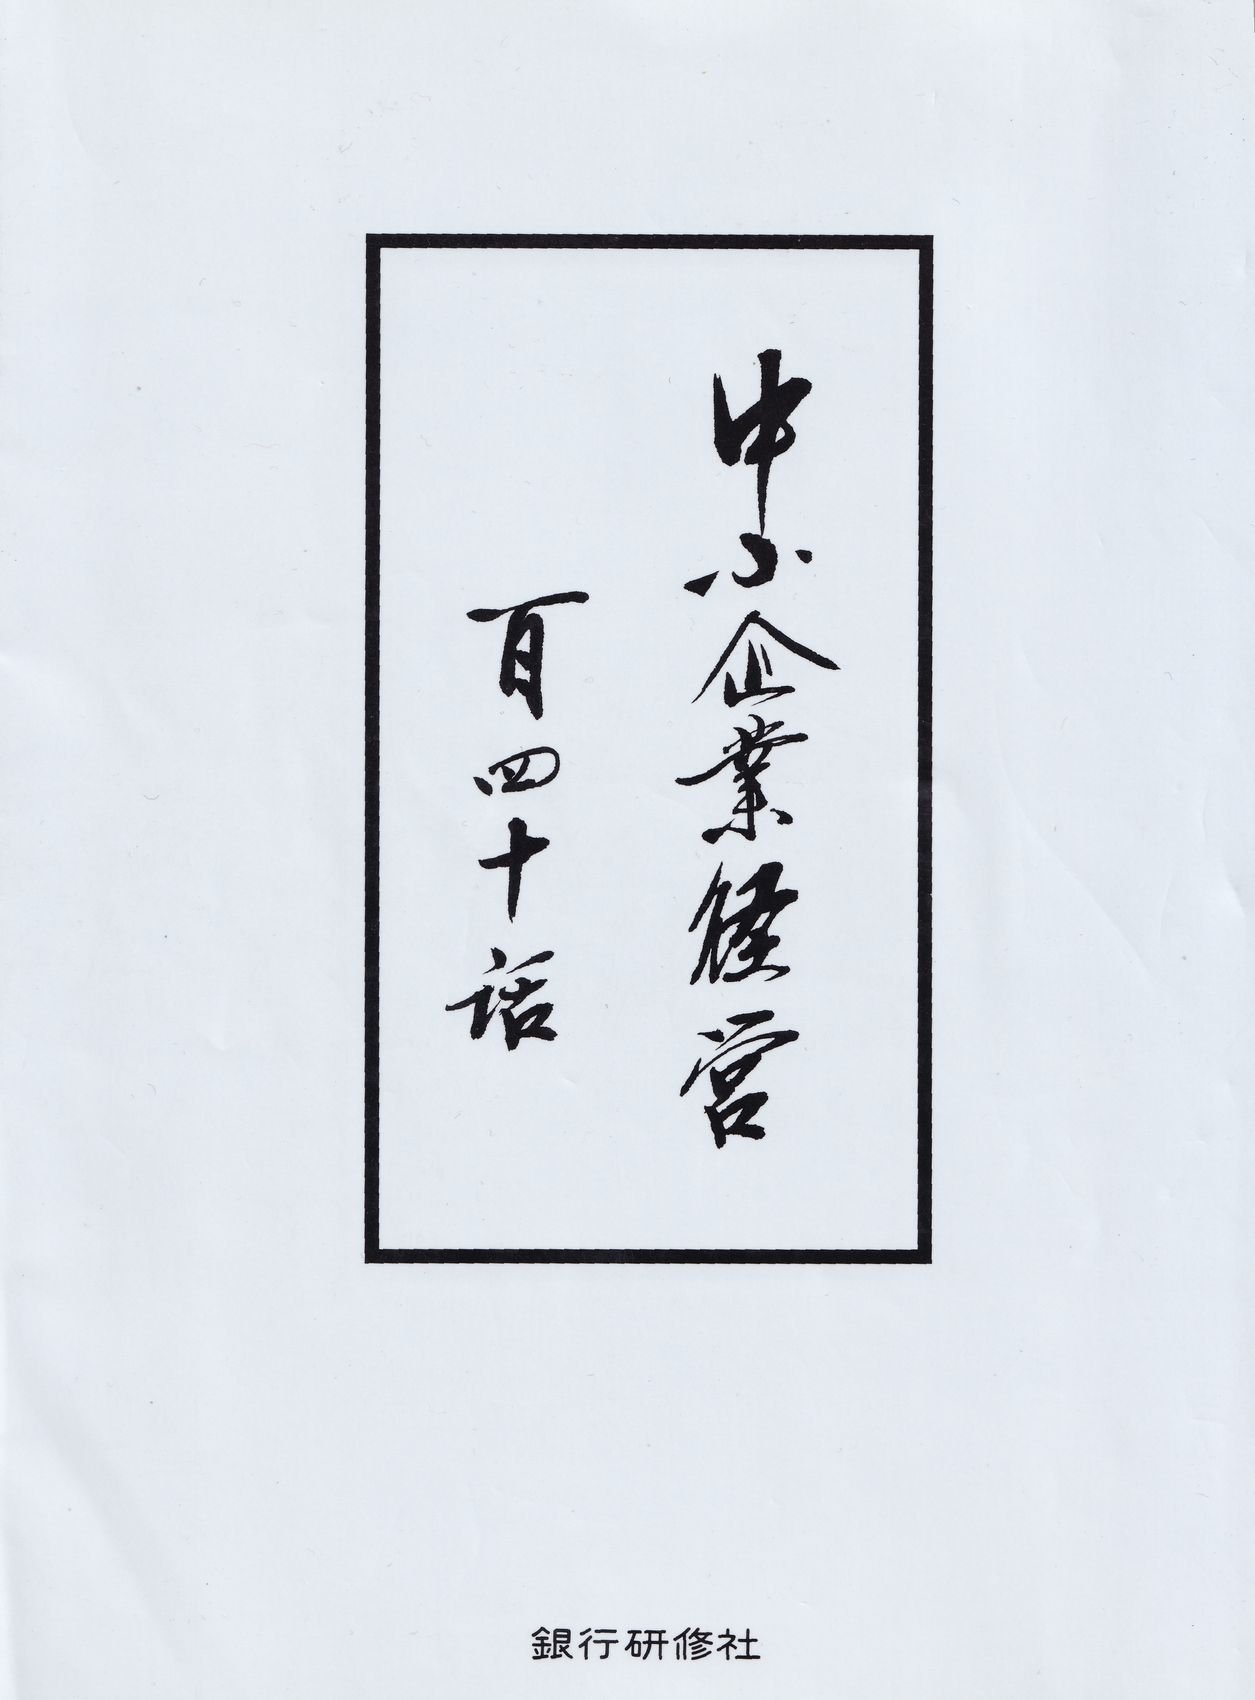 中小企業経営
百四十話
銀行研修社